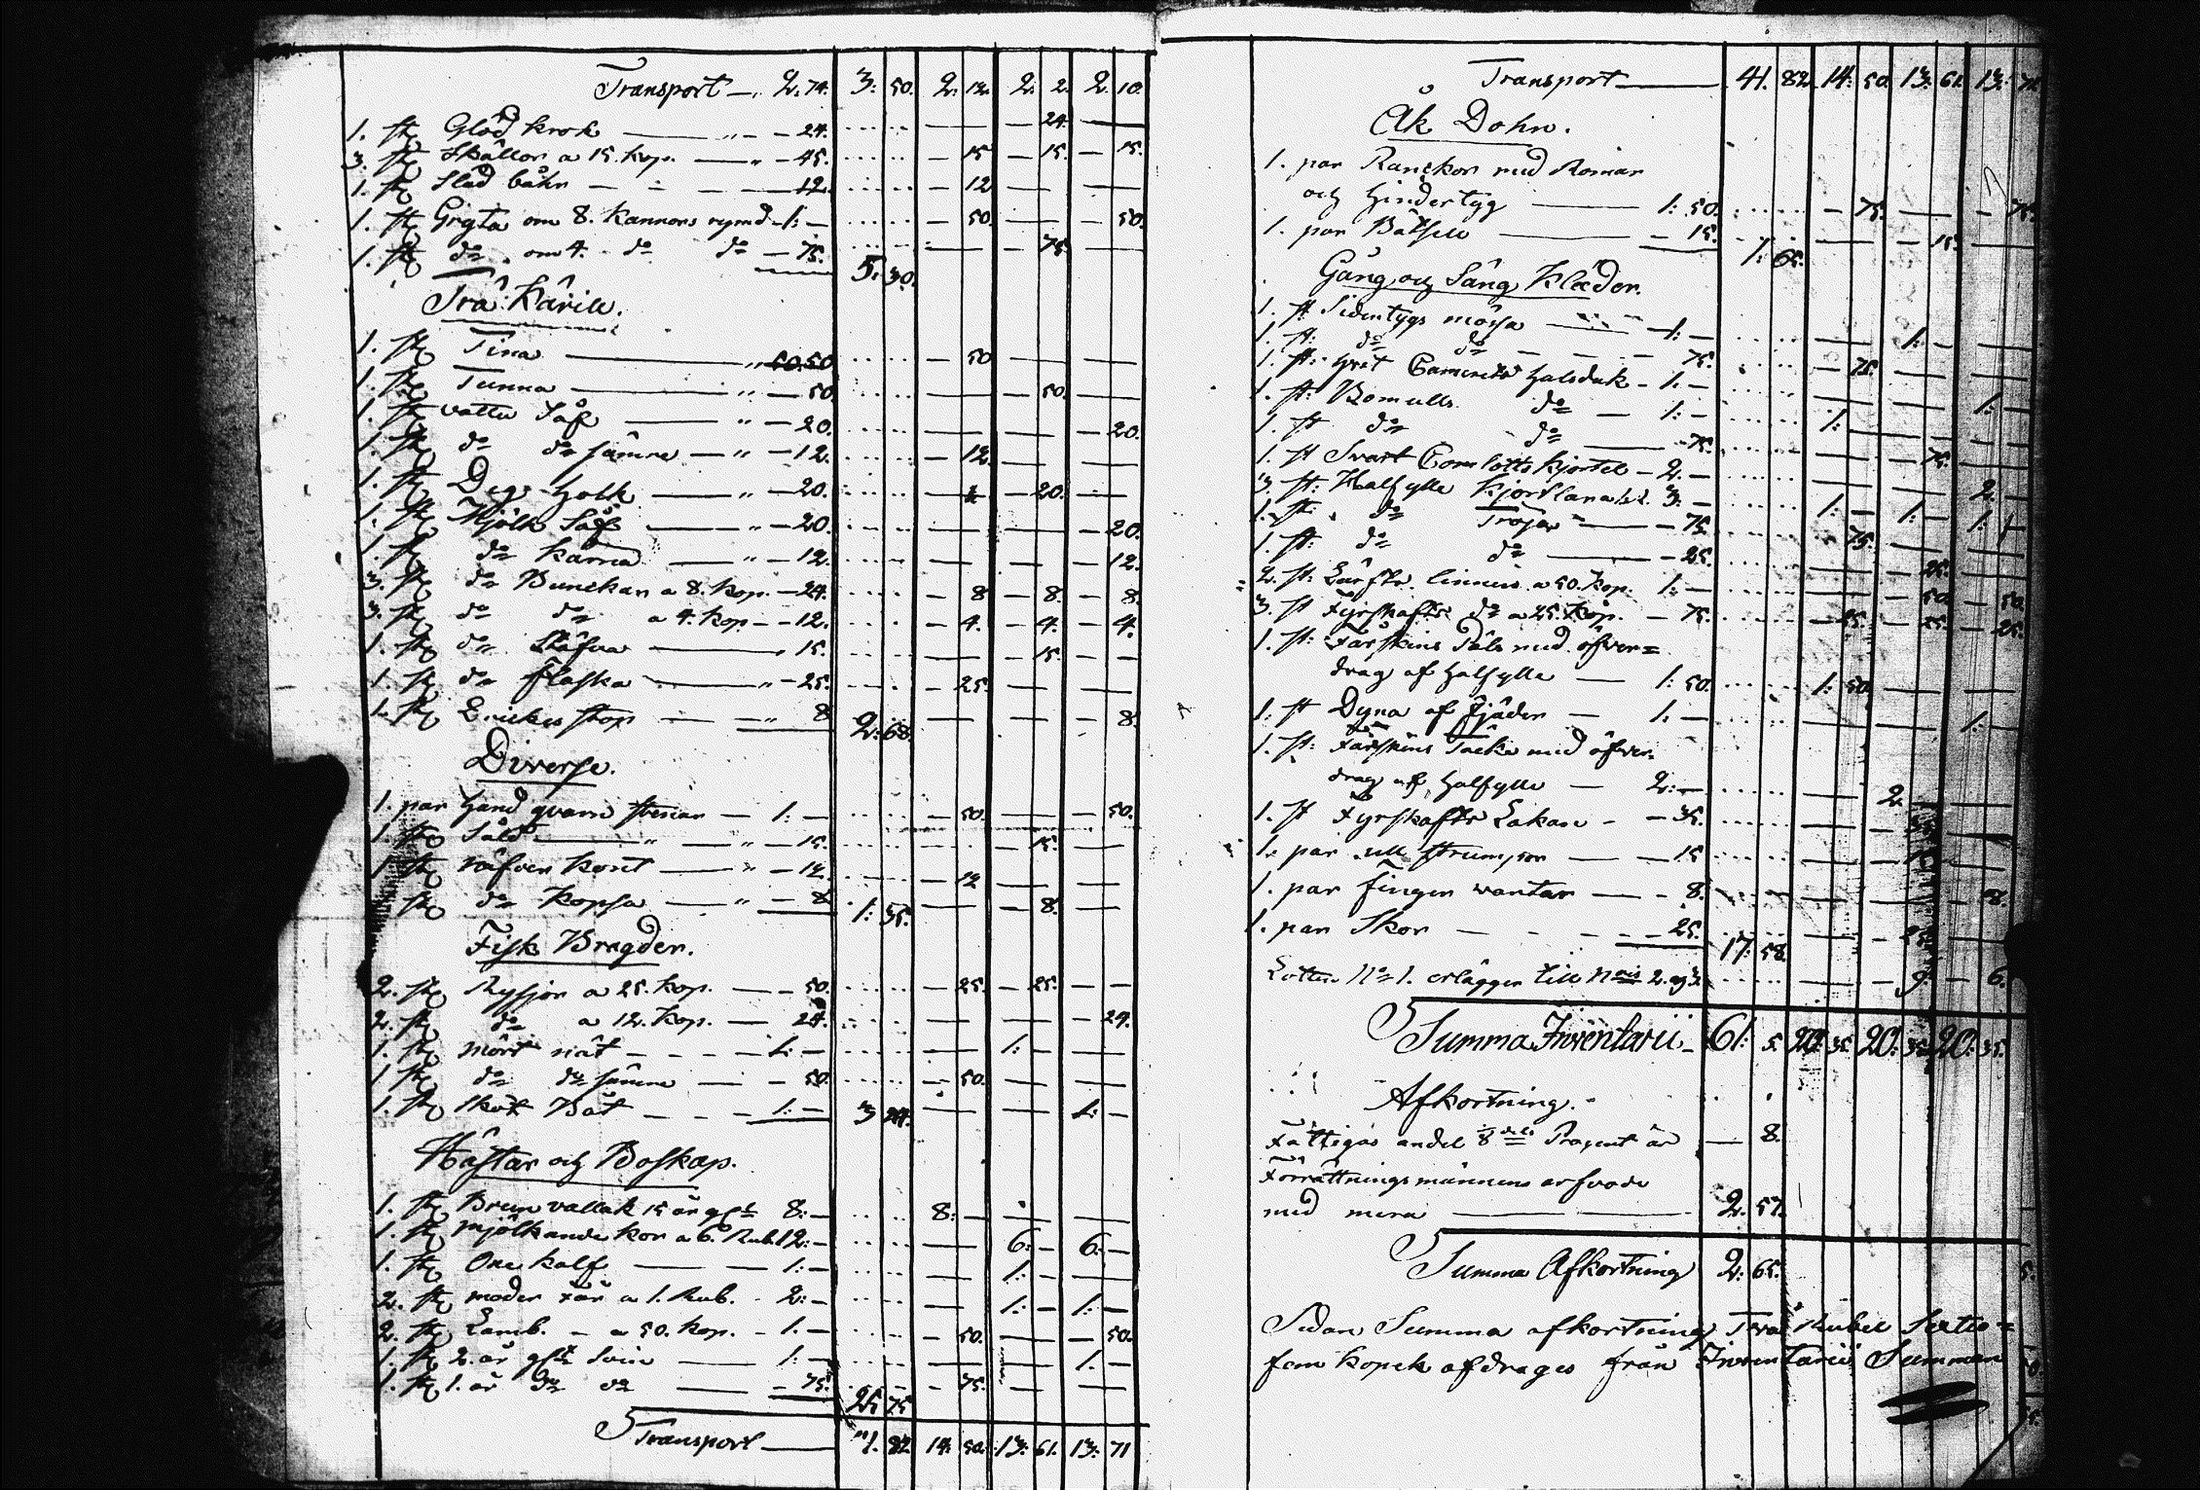 Transport — 2. 74. 3: 50. 2. 12. 2. 2. 2. 10.
1. st Glöd krok — " — 24. — — 24. —
3. st Skållor a 15. kop. — " — 45. — 15 — 15. — 15.
1. st Slad båhn — — — 12. — 12 — —
1. st Gryta om 8. kannors rymd 1: — — 50. — 50.
1. st do. om 4. do do — 75. — 75. —
5. 30.
Trä Kärill.
1. st Tina — " 50 — 50
1. st Tunna — " — 50 — 50. —
1. st vattu Såf — " — 20. — — 20.
1. st do do sämre — " — 12. — 12. — —
1. st Deg holk — " — 20. — 20. —
1. st Mjölk Såf — " — 20. — — 20.
1. st do kärna — " — 12. — — 12.
3. st do Bunckar a 8. kop. — 24. — 8 — 8. — 8.
3. st do do a 4. kop — 12. — 4. — 4. — 4.
1. st do Skäfva — " 15. — 15. —
1. st do flaska — " — 25. — 25. — —
1. st Drickes stop — " 8 — — 8.
2: 68.
Diverse.
1. par hand qvarn stenar — 1: — — 50. — 50.
1. st Såld — " — 15. — 15. —
1 st näfver kont — " — 12. — 12 — —
st do kopsa — " — 8 — 8. —
1: 35.
Fisk Bragder.
2. st Ryssjor a 25. kop. — 50. — 25. — 25. —
2. st do a 12. kop. — 24. — — 24.
1. st mört nät — 1: — — 1: — —
1 st do do sämre — 50. — 50. — —
1. st sköt Båt — 1: — — — 1: —
3 24.
Hästar och Boskap.
1. st Brun vallak 15 år gl 8: — 8: — — —
1. st mjölkande kor a 6. Rub. 12: — — 6: — 6: —
1. st One kalf — 1: — — 1: — —
2. st moder får a 1. Rub. 2: — — 1: — 1: —
2. st Lamb. — a 50. kop. — 1. — — 50. — — 50.
1. st 2. år glt svin — 1: — — — 1. —
1. st 1. år do do — 75. — 75. — —
25 75
Transport — 41. 82 14: 50. 13: 61. 13: 71
Transport — 41. 82. 14: 50. 13: 61. 13: 71
Åk Dohn.
1. par Ranckor med Remar
och hindertyg — 1: 50. — 75. — — 75.
1. par Båtsele — 15. — — 15. —
1: 65.
Gång och Säng Kläder.
1. st Sidentygs mössa — 1: — — 1: —
1. st: do do — 75. — 75. —
1. st: hvit Camericks halsduk — 1. — — 1: —
1. st: Bomulls do — 1: — 1: —
1. st do do — 75. — 75. —
1. st Svart Comlotts kjortel — 2. — — 2. —
3. st: Halfylle kjortlar 3: — 1: — 1: — 1: —
1. st. do Tröjor — 75 — 75. —
1. st: do do — 25. — 25. —
2. st: Lärfts linnen a 50. kop. 1: — — 50. — 50.
3. st Fyrskafts do a 25. kop. — 75. — 25. — 25. — 25.
1. st: Fårskins Päls med öfver=
drag af halfylle — 1: 50. 1: 50. —
1. st Dyna af fjäder — 1. — — 1. —
1. st: Fårskins Täcke med öfver=
drag af halfylle — 2: — — 2
1. st Fyrskafts Lakan — — 35. — 35
1. par ull strumpor — 15 — 15
1. par finger vantar — — 8. — 8.
1. par Skor — — 25. — 25.
17: 58.
Lotten No 1. erlägger till Nris 2. og 3. — 9. — 6.
Summa Inventarii 61: 5. 20. 35. 20. 35. 20: 35.
Afkortning.
Fattigas andel 1/8 dels Procent är — 8.
Förrättningsmännens arfvode
med mera — 2. 57.
Summa Afkortning 2: 65.
Sedan Summa afkortning Två Rubel Sextio=
fem kopek afdrages från Inventarii Summan